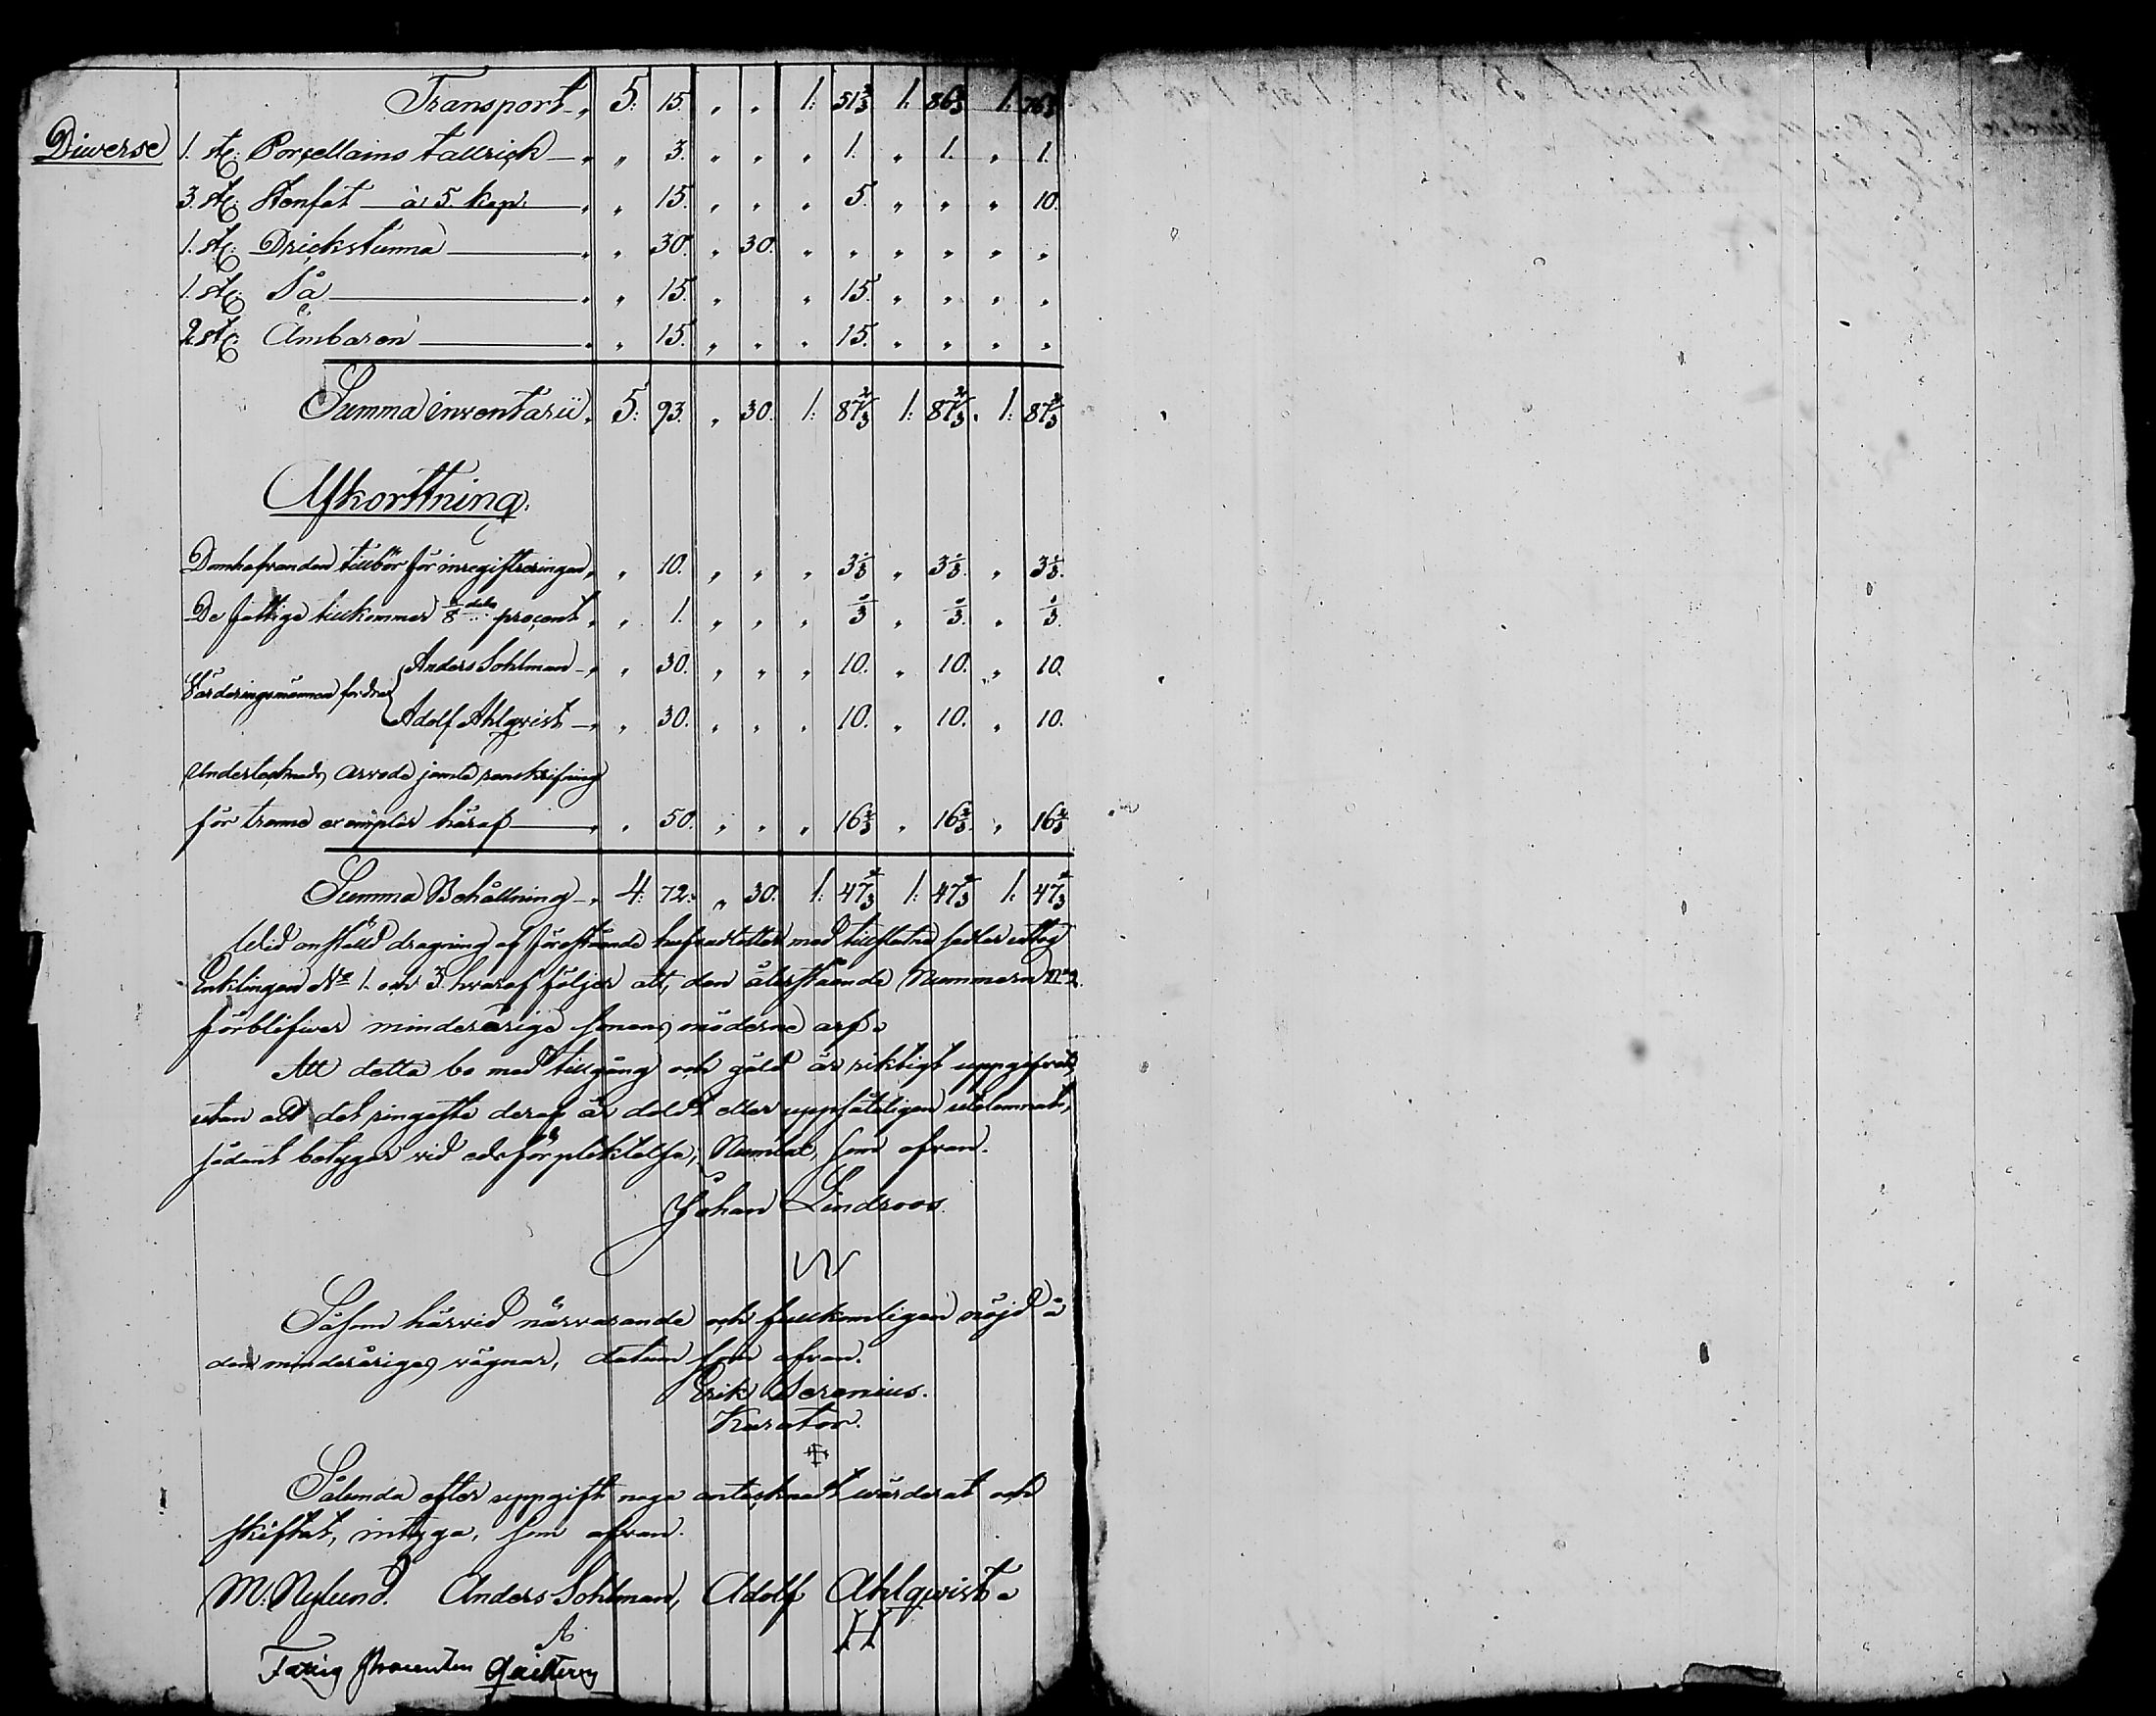 Transport 5: 15. " " 1: 51 2/3 1: 86 2/3 1: 76 2/3
Diverse 1. st. Porcellains tallrick " " 3. " " " 1. " 1. " 1.
3. st. Stenfat à 5. kop: " " 15. " " " 5. " " " 10.
1. st. Drickstunna " " 30. " 30. " " " " " "
1. st. Så " " 15. " " 15. " " " "
2 st. Ämbaren " " 15. " " " 15. " " " "
Summa inventarii 5: 93. " 30. 1: 87 2/3 1: 87 2/3 1: 87 2/3
Afkorttning.
Domhafvanden tillbör för inregistreringen " 10. " " " 3 1/3 " 3 1/3. " 3 1/3.
De fattige tillkommer 1/8 dels procent " " 1. " " " 1/3 " 1/3. " 1/3.
Anders Sohlman " " 30. " " " 10. " 10. " 10.
Värderingsmännen fordra
Adolf Ahlqvist " " 30. " " " 10. " 10. " 10.
Undertecknads arvode jemte renskrifning
för trenne exemplar häraf " " 50. " " " 16 2/3 " 16 2/3. " 16 2/3
Summa Behållning 4: 72. " 30. 1: 47 1/3 1: 47 1/3 1: 47 1/3
Wid anställd dragning af förestående hufvudlotter med tillslutne sedlar uttog
Enklingen No 1. och 3. hvaraf följer att den återstående Nummern No 2.
förblifver minderårige sonens möderne arf.
Att detta bo med tillgång och gäld är riktigt uppgifvet,
utan att det ringaste deraf är doldt eller uppsåteligen utelemnadt,
sådant betygar vid edsförpliktelse, Numlax, som ofvan.
Johan Lindroos.
Såsom härvid närvarande och fullkomligen nöjd å
den minderåriges vägnar, datum som ofvan.
Erik Serenius.
Kurator.
Sålunda efter uppgift noga antecknadt värderat och
skiftat, intyga, som ofvan.
M: Nylund. Anders Sohlman, Adolf Ahlqvist.
A H
Fattig Procenten qvitteras